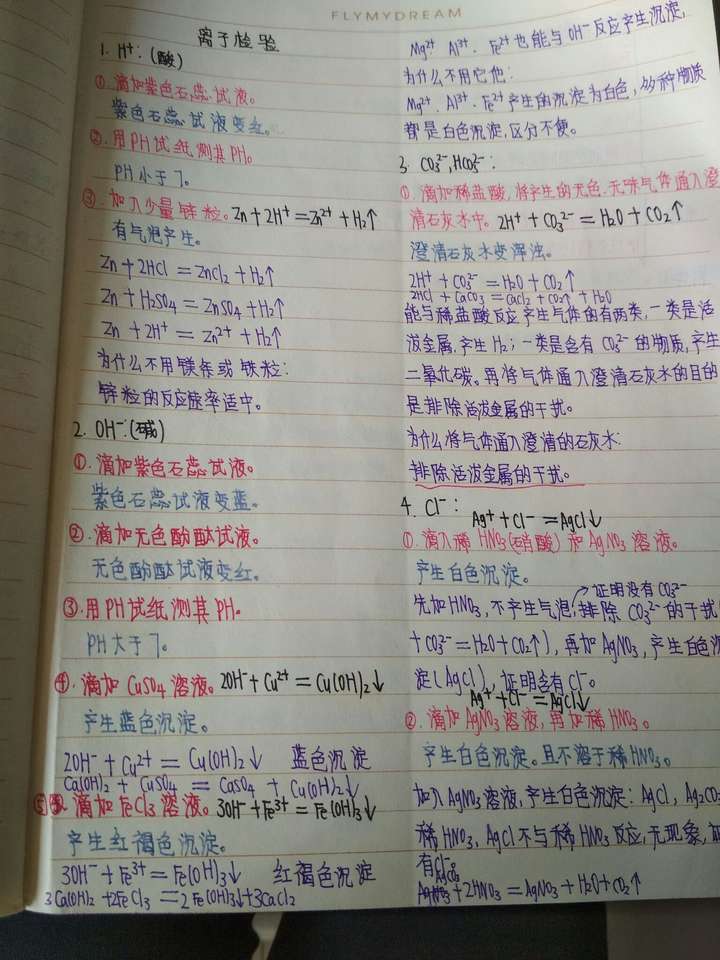 FLYMYDREAM
离子检验
1. H⁺:(酸)
①. 滴加紫色石蕊试液。
紫色石蕊试液变红。
②. 用PH试纸测其PH。
PH小于7。
③. 加入少量锌粒。Zn+2H⁺=Zn²⁺+H₂↑
有气泡产生。
Zn+2HCl=ZnCl₂+H₂↑
Zn+H₂SO₄=ZnSO₄+H₂↑
Zn+2H⁺=Zn²⁺+H₂↑
为什么不用镁条或铁粒:
锌粒的反应速率适中。
2. OH⁻:(碱)
①. 滴加紫色石蕊试液。
紫色石蕊试液变蓝。
②. 滴加无色酚酞试液。
无色酚酞试液变红。
③. 用PH试纸测其PH。
PH大于7。
④. 滴加CuSO₄溶液。2OH⁻+Cu²⁺=Cu(OH)₂↓
产生蓝色沉淀。
2OH⁻+Cu²⁺=Cu(OH)₂↓ 蓝色沉淀
Ca(OH)₂+CuSO₄=CaSO₄+Cu(OH)₂↓
⑤ 滴加FeCl₃溶液。3OH⁻+Fe³⁺=Fe(OH)₃↓
产生红褐色沉淀。
3OH⁻+Fe³⁺=Fe(OH)₃↓ 红褐色沉淀
3Ca(OH)₂+2FeCl₃=2Fe(OH)₃↓+3CaCl₂
Mg²⁺、Al³⁺、Fe²⁺也能与OH⁻反应产生沉淀,
为什么不用它他:
Mg²⁺、Al³⁺、Fe²⁺产生的沉淀为白色,多种物质
都是白色沉淀,区分不便。
3. CO₃²⁻,HCO₃⁻:
①. 滴加稀盐酸,将产生的无色、无味气体通入澄
清石灰水中。2H⁺+CO₃²⁻=H₂O+CO₂↑
澄清石灰水变浑浊。
2H⁺+CO₃²⁻=H₂O+CO₂↑
2HCl+CaCO₃=CaCl₂+CO₂↑+H₂O
能与稀盐酸反应产生气体的有两类,一类是活
泼金属,产生H₂;一类是含有CO₃²⁻的物质,产生
二氧化碳。再将气体通入澄清石灰水的目的
是排除活泼金属的干扰。
为什么将气体通入澄清的石灰水:
排除活泼金属的干扰。
4. Cl⁻: Ag⁺+Cl⁻=AgCl↓
①. 滴入稀HNO₃(硝酸)和AgNO₃溶液。
产生白色沉淀。
证明没有CO₃²⁻
先加HNO₃,不产生气泡,排除CO₃²⁻的干扰
+CO₃²⁻=H₂O+CO₂↑),再加AgNO₃,产生白色沉
淀(AgCl),证明含有Cl⁻。
Ag⁺+Cl⁻=AgCl↓
②. 滴加AgNO₃溶液,再加稀HNO₃。
产生白色沉淀。且不溶于稀HNO₃。
加入AgNO₃溶液,产生白色沉淀:AgCl,Ag₂CO₃
稀HNO₃,AgCl不与稀HNO₃反应,无现象,证
有Cl⁻。
Ag₂CO₃+2HNO₃=AgNO₃+H₂O+CO₂↑